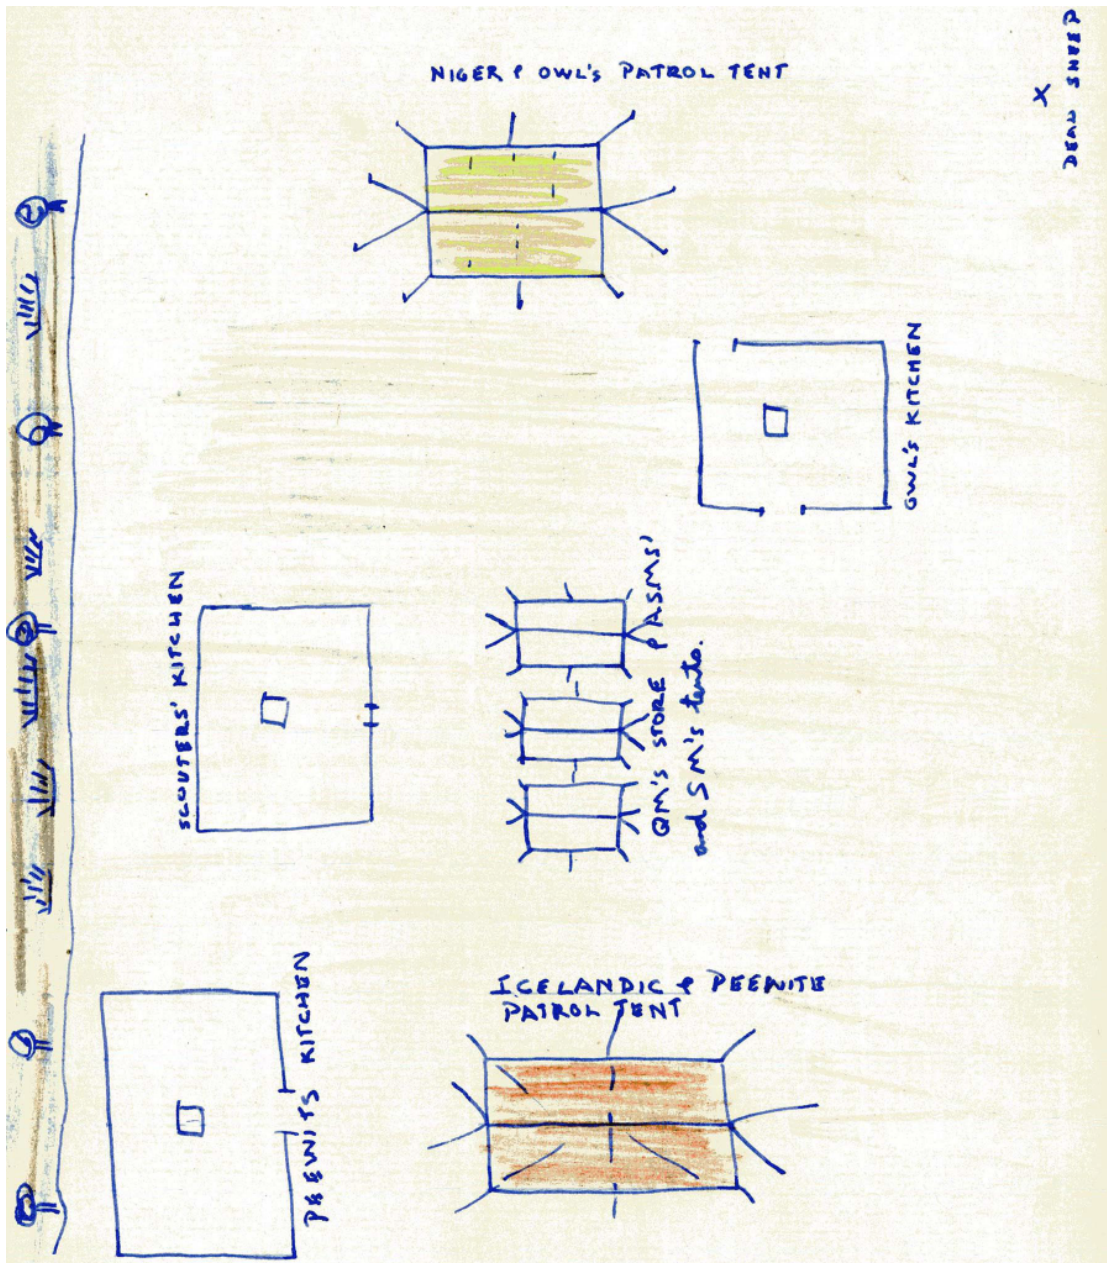 NIGER & OWL'S PATROL TENT
DEAD SHEEP
X
OWL'S KITCHEN
SCOUTERS' KITCHEN
QM'S STORE & ASMS'
and SM's tents.
PEEWITS KITCHEN
ICELANDIC & PEEWITE
PATROL TENT